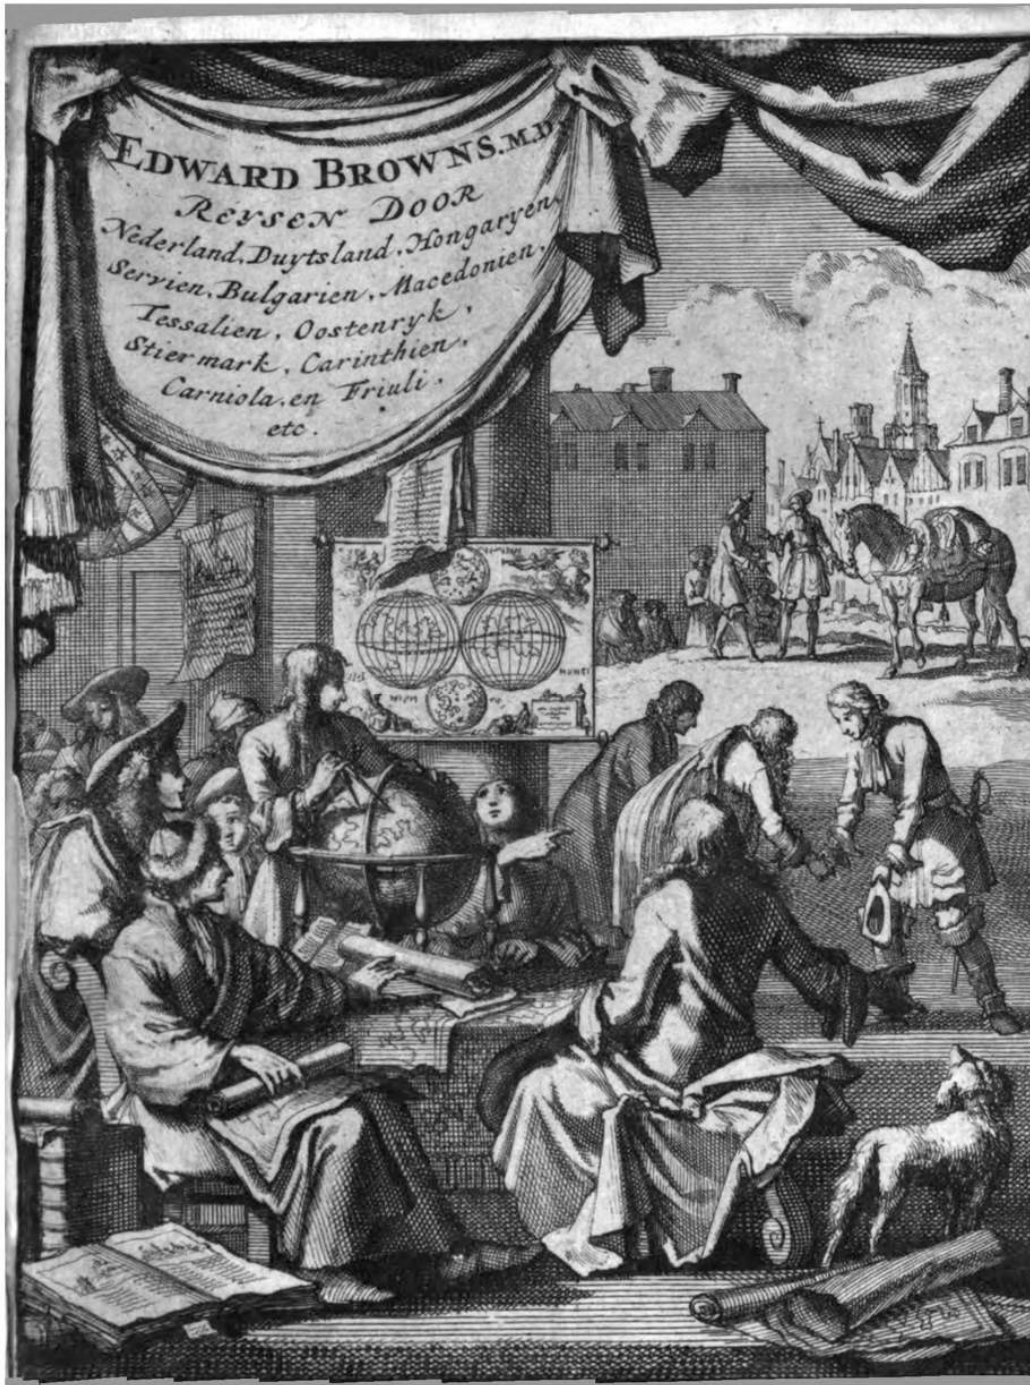 EDWARD BROWNS.M.D
REYSEN DOOR
Nederland, Duytsland, Hongaryen,
Servien, Bulgarien, Macedonien,
Tessalien, Oostenryk,
Stiermark, Carinthien,
Carniola, en Friuli,
etc.